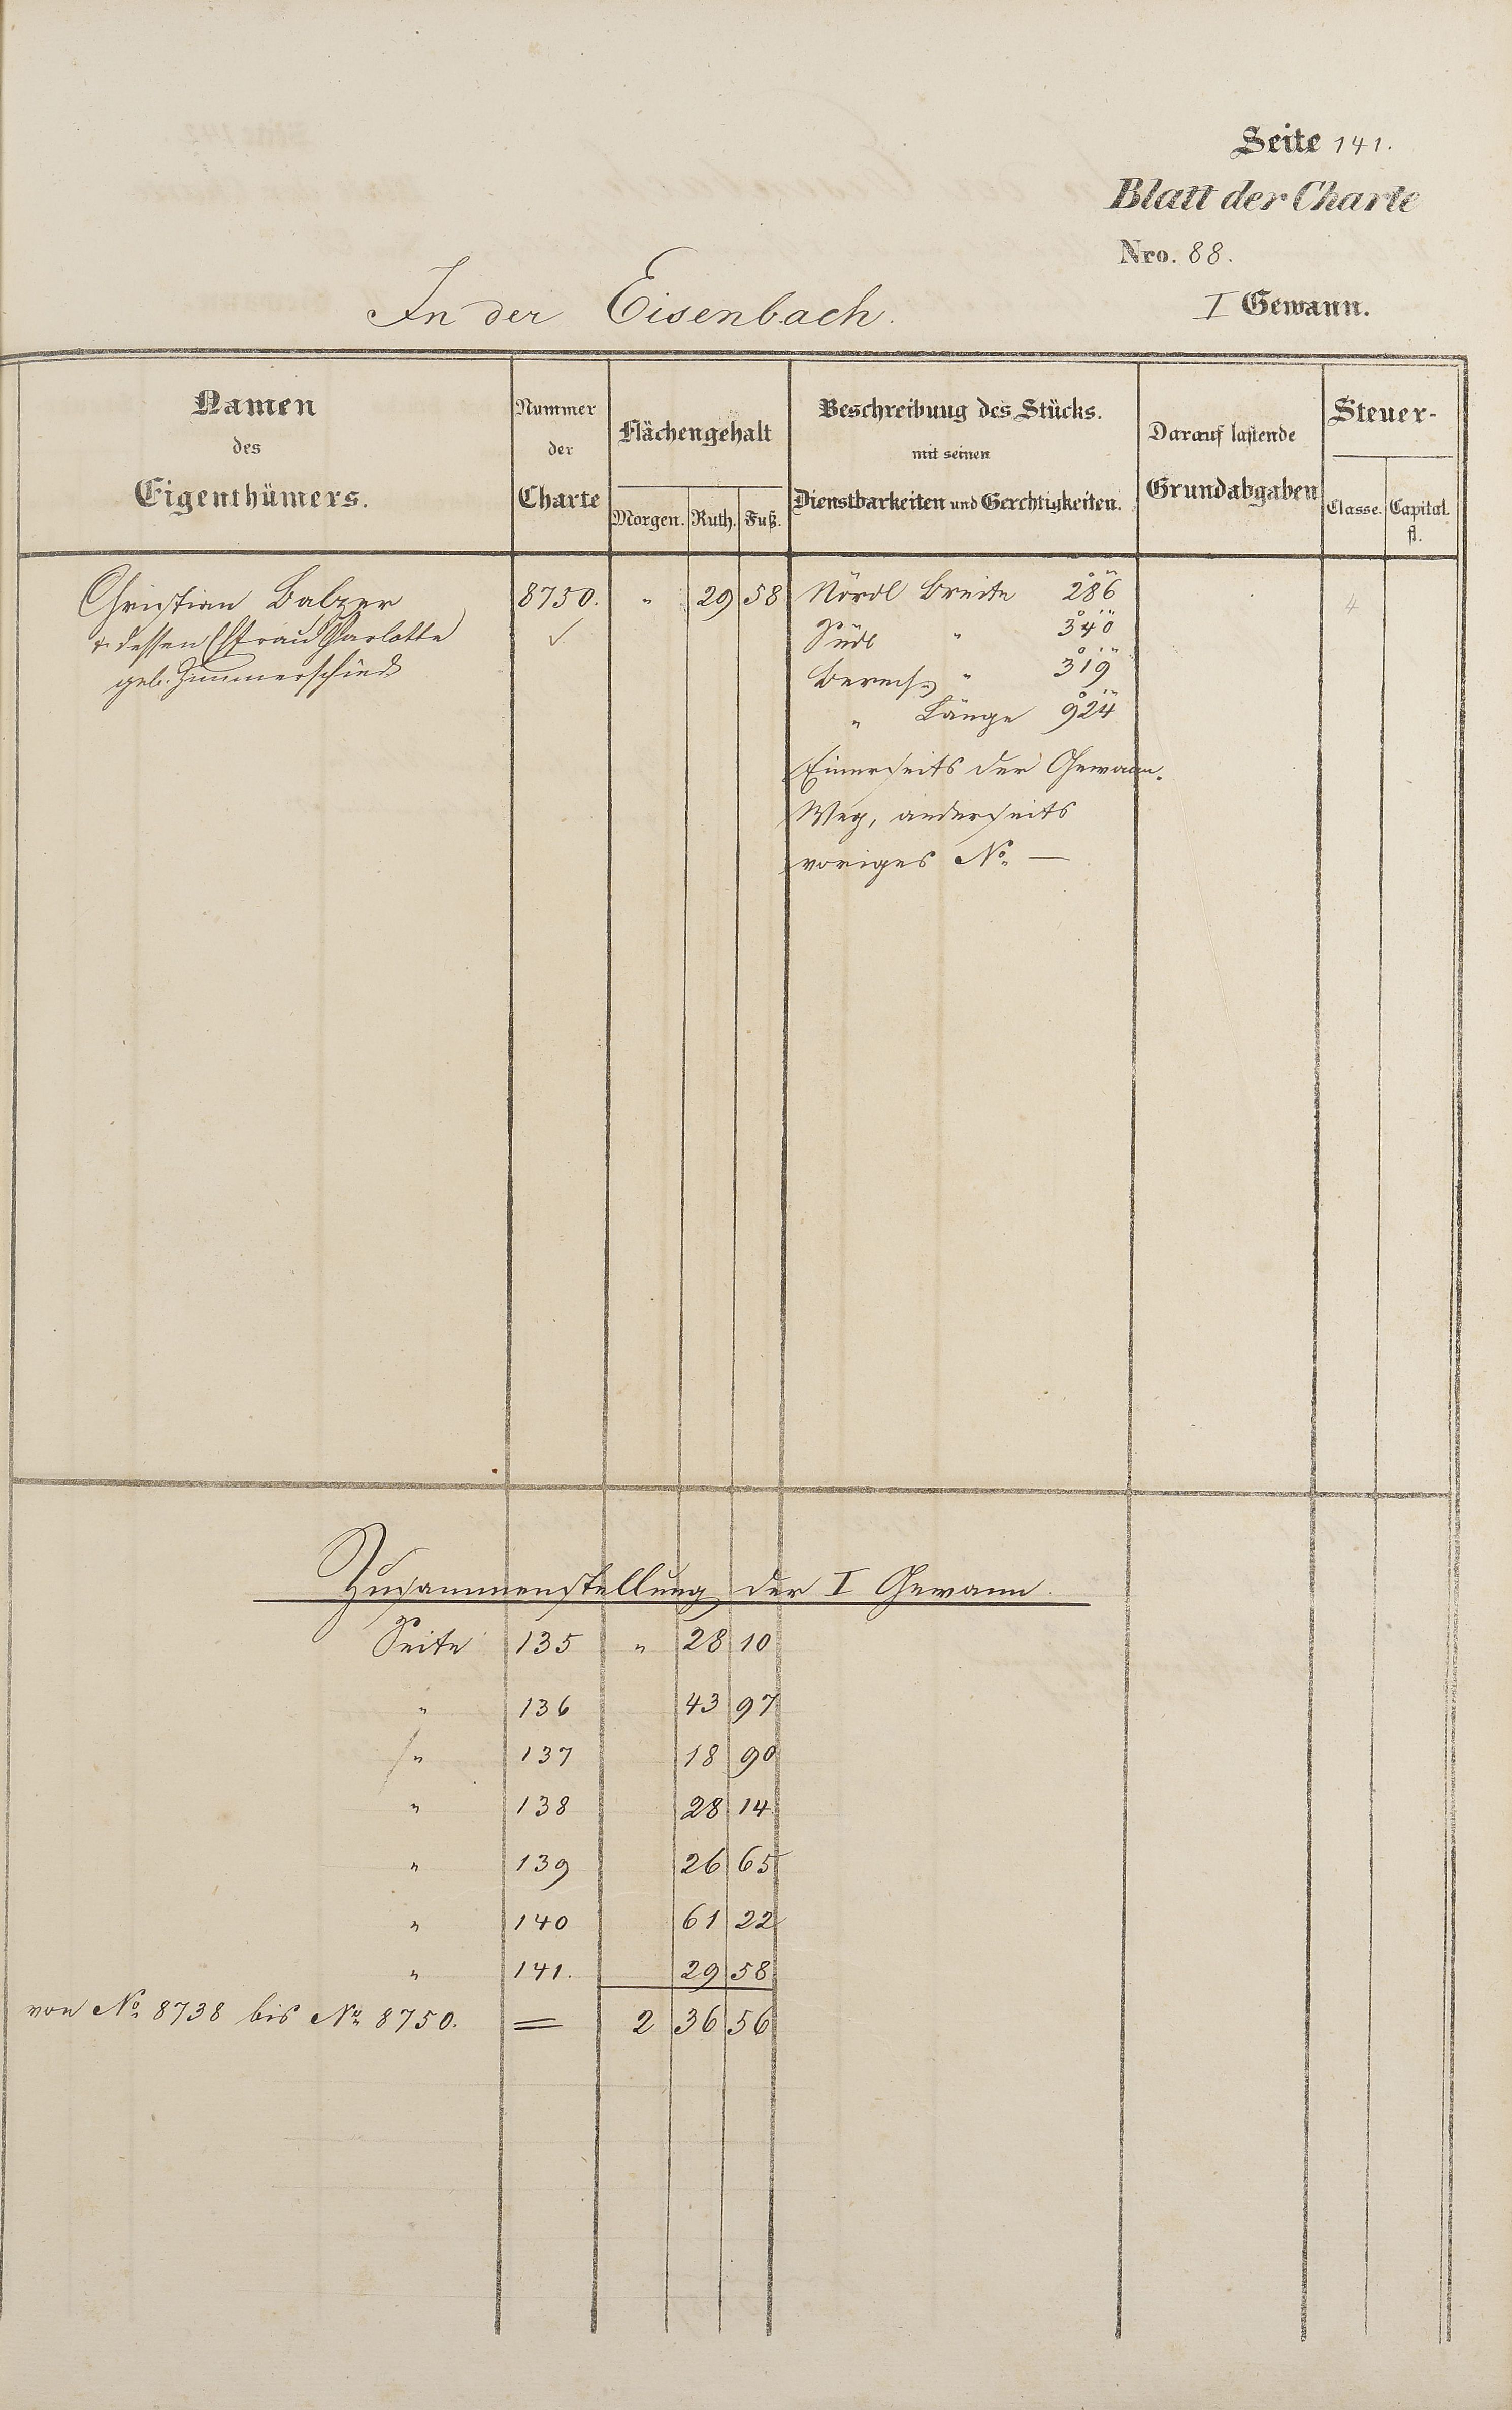 Seite 141.
Blatt der Charte
Nro. 88.
In der Eisenbach.
I Gewann.
Namen des Eigenthümers.
Nummer der Charte
Flächengehalt
Morgen. Ruth. Fuß.
Beschreibung des Stücks.
mit seinen
Dienstbarkeiten und Gerechtigkeiten.
Darauf lastende
Grundabgaben
Steuer-
Classe. Capital.
fl.
Christian Balzer 8750. " 29 58 Nördl Breite 286 4
& dessen Ehfrau Charlotte ✓ Südl " 340
geb. Zimmerschied Berech. " 319
" Länge 924
Einerseits der Gewann-
Weg, anderseits
voriges No. —
Zusammenstellung der I Gewann.
Seite 135 " 28 10
" 136 43 97
" 137 18 90
" 138 28 14
" 139 26 65
" 140 61 22
" 141. 29 58
von No. 8738 bis No. 8750. = 2 36 56